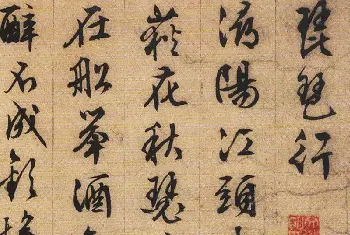 琵琶行
潯陽江頭
荻花秋瑟
在船舉酒
醉不成歡